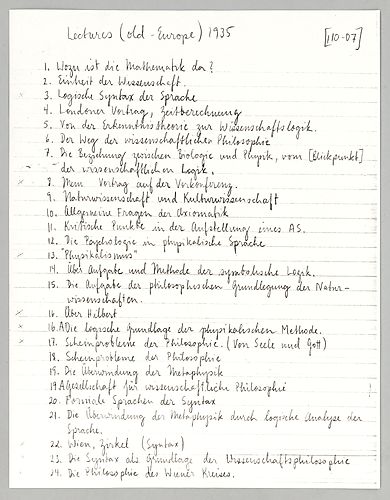 Lectures (old-Europe) 1935 [110-07]
1. Wozu ist die Mathematik da?
2. Einheit der Wissenschaft.
3. Logische Syntax der Sprache
4. Londoner Vortrag, Zeitberechnung
5. Von der Erkenntnistheorie zur Wissenschaftslogik.
6. Der Weg der wissenschaftlichen Philosophie
7. Die Beziehung zwischen Biologie und Physik, vom [Blickpunkt]
der wissenschaftlichen Logik.
x 8. Mein Vortrag auf der Vorkonferenz.
9. Naturwissenschaft und Kulturwissenschaft
10. Allgemeine Fragen der Axiomatik
11. Kritische Punkte in der Aufstellung eines AS.
12. Die Psychologie in physikalische Sprache
x 13. "Physikalismus"
14. Über Aufgabe und Methode der symbolische Logik.
15. Die Aufgabe der philosophischen Grundlegung der Natur-
wissenschaften.
x 16. Über Hilbert
x 16.A Die logische Grundlage der physikalischen Methode.
x 17. Scheinprobleme der Philosophie. (Von Seele und Gott)
18. Scheinprobleme der Philosophie
19. Die Überwindung der Metaphysik
19.A Gesellschaft für wissenschaftliche Philosophie
20. Formale Sprachen der Syntax
21. Die Überwindung der Metaphysik durch logische Analyse der
Sprache.
22. Wien, Zirkel (Syntax)
23. Die Syntax als Grundlage der Wissenschaftsphilosophie
24. Die Philosophie des Wiener Kreises.